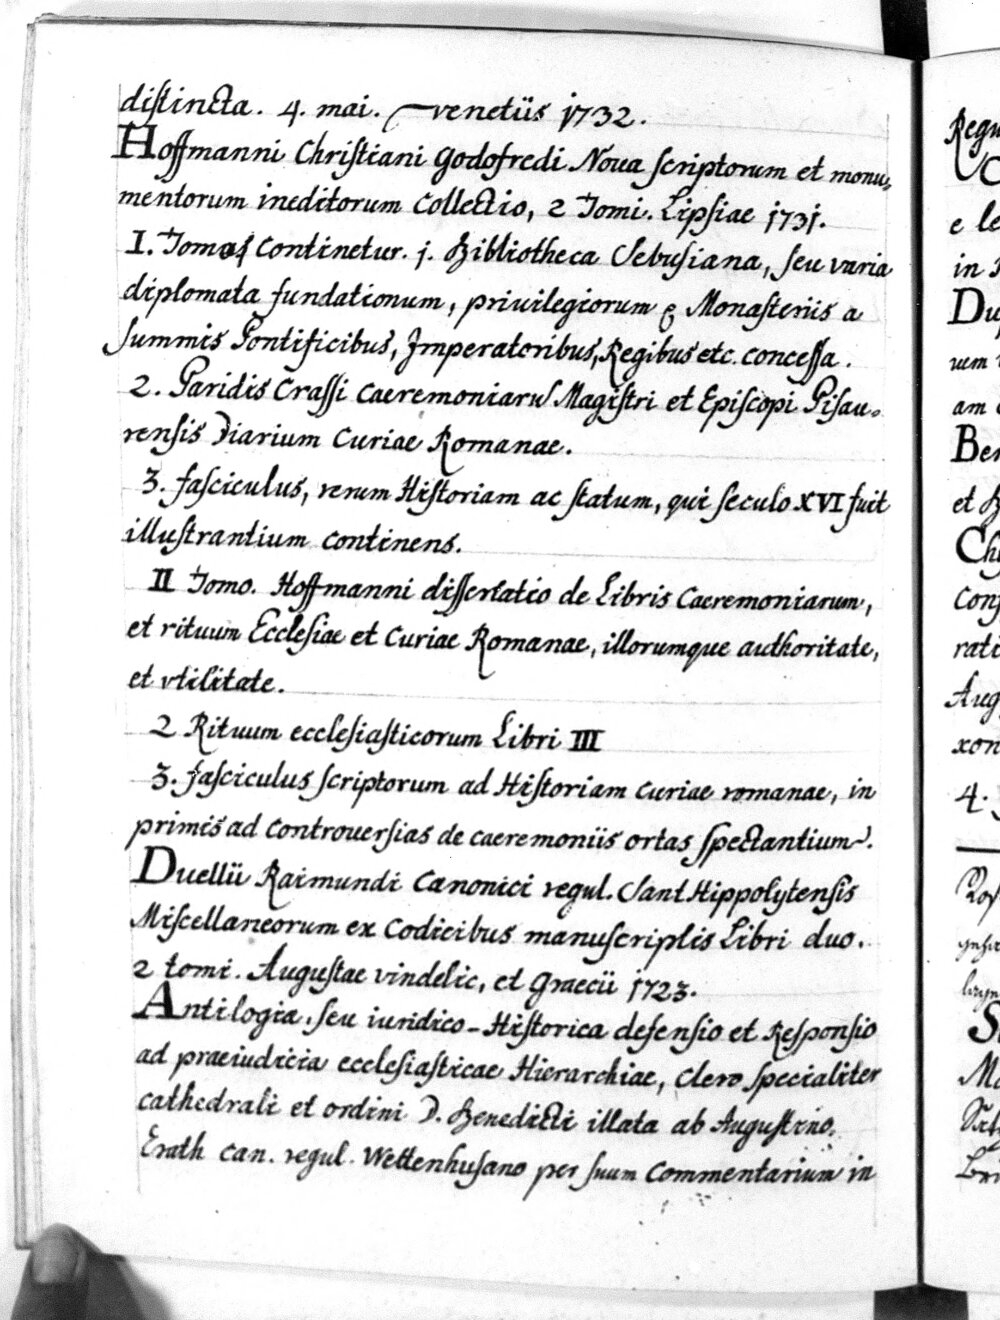 distincta. 4. mai. — venetiis 1732.
Hoffmanni Christiani Godofredi Noua scriptorum et monu„
mentorum ineditorum Collectio, 2 Tomi. Lipsiae 1731.
I. Tomus Continetur. 1. Bibliotheca Sebusiana, seu varia
diplomata fundationum, priuilegiorum & Monasteriis a
summis Pontificibus, Imperatoribus, Regibus etc. concessa.
2. Paridis Crassi Caeremoniarum Magistri et Episcopi Pisau„
rensis Diarium Curiae Romanae.
3. fasciculus, rerum Historiam ac statum, qui seculo XVI fuit
illustrantium continens.
II Tomo. Hoffmanni dissertatio de Libris Caeremoniarum,
et rituum Ecclesiae et Curiae Romanae, illorumque authoritate,
et vtilitate.
2 Rituum ecclesiasticorum Libri III
3. fasciculus scriptorum ad Historiam Curiae romanae, in
primis ad Controuersias de caeremoniis ortas spectantium.
Duellii Raimundi Canonici regul. Sant Hippolytensis
Miscellaneorum ex Codicibus manuscriptis Libri duo.
2 tomi. Augustae vindelic, et Graecii 1723.
Antilogia, seu iuridico-Historica defensio et Responsio
ad praeiudicia ecclesiasticae Hierarchiae, Clero specialiter
cathedrali et ordini D. Benedicti illata ab Augustino
Erath can. regul. Wettenhusano per suum Commentarium in
Regu
e le
in
Du
uem
am
Ber
et
Con
rati
Aug
xon
4.